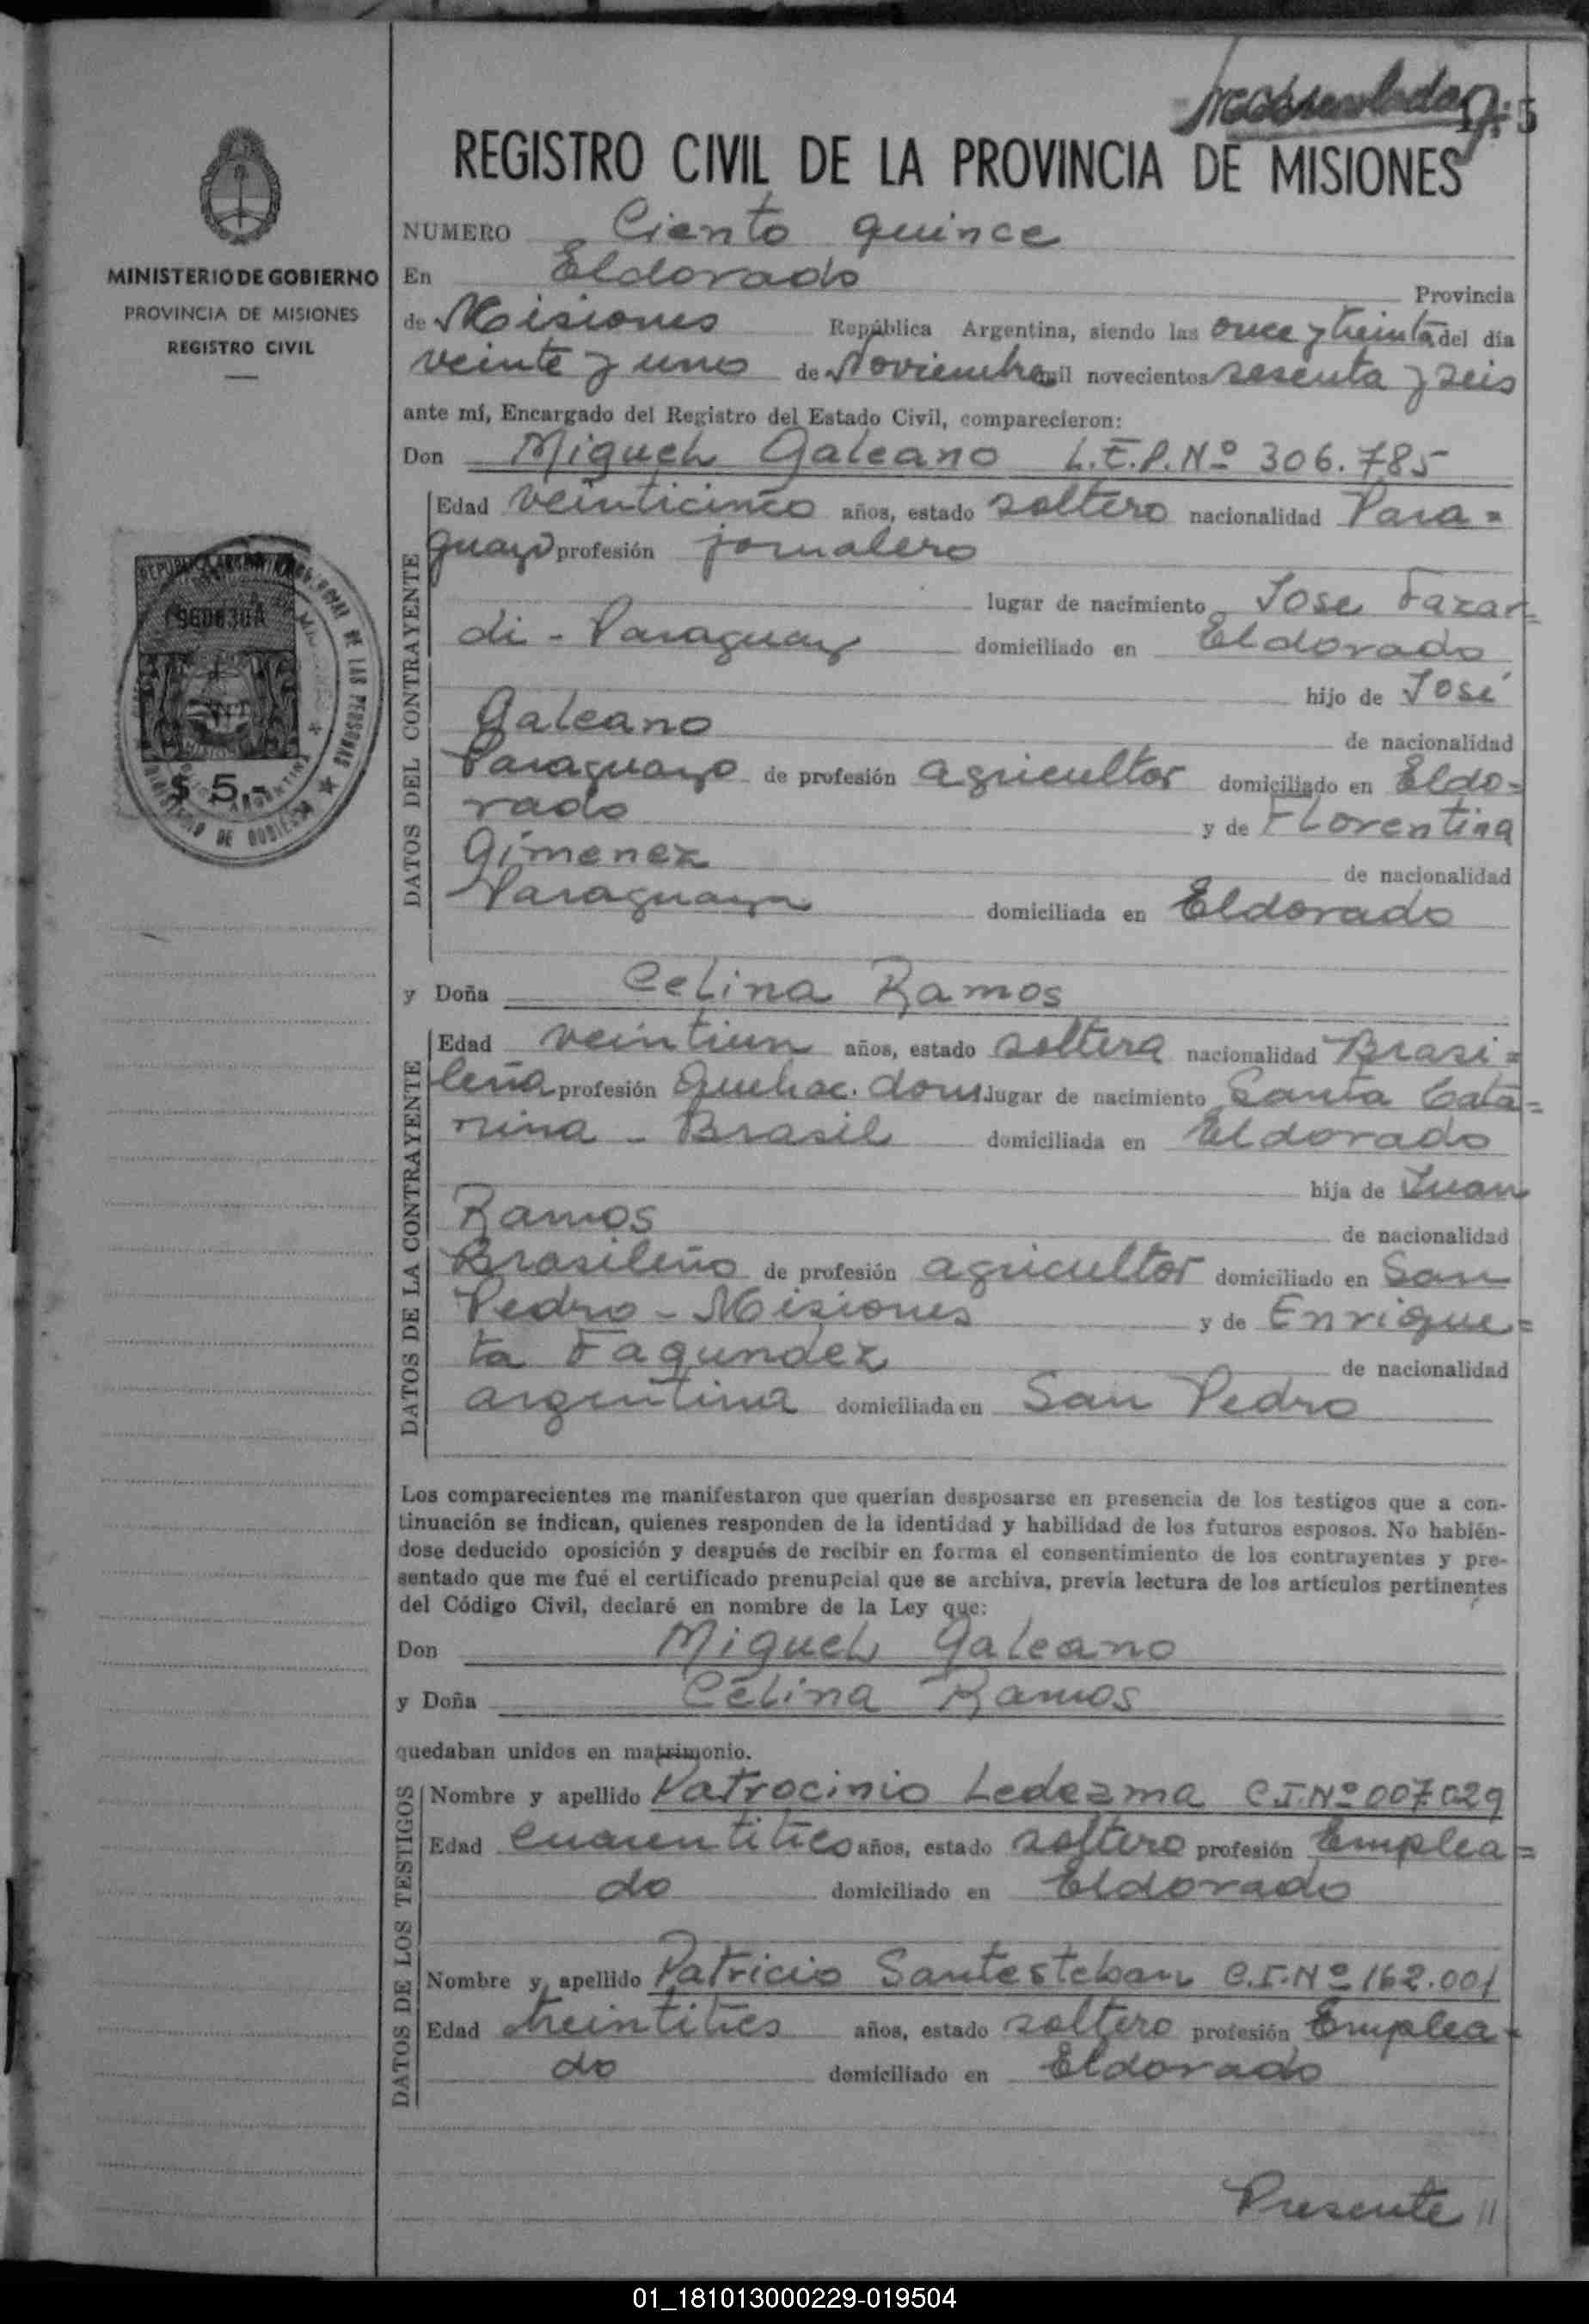 REGISTRO CIVIL DE LA PROVINCIA DE MISIONES
MINISTERIO DE GOBIERNO
PROVINCIA DE MISIONES
REGISTRO CIVIL
$ 5.-
NUMERO Ciento quince
En Eldorado Provincia
de Misiones República Argentina, siendo las once y treinta del día
veinte y uno de Noviembre mil novecientos sesenta y seis
ante mí, Encargado del Registro del Estado Civil, comparecieron:
Don Miguel Galeano L.E.P.Nº 306.785
DATOS DEL CONTRAYENTE
Edad veinticinco años, estado soltero nacionalidad Para=
guayo profesión jornalero
lugar de nacimiento Jose Fazar=
di - Paraguay domiciliado en Eldorado
hijo de José
Galeano de nacionalidad
Paraguayo de profesión agricultor domiciliado en Eldo=
rado y de Florentina
Gimenez de nacionalidad
Paraguaya domiciliada en Eldorado
y Doña Celina Ramos
DATOS DE LA CONTRAYENTE
Edad veintiun años, estado soltera nacionalidad Brasi=
leña profesión Quehac. dom. lugar de nacimiento Santa Cata=
rina - Brasil domiciliada en Eldorado
hija de Juan
Ramos de nacionalidad
Brasileño de profesión agricultor domiciliado en San
Pedro - Misiones y de Enrique=
ta Fagundez de nacionalidad
argentina domiciliada en San Pedro
Los comparecientes me manifestaron que querían desposarse en presencia de los testigos que a con-
tinuación se indican, quienes responden de la identidad y habilidad de los futuros esposos. No habién-
dose deducido oposición y después de recibir en forma el consentimiento de los contrayentes y pre-
sentado que me fué el certificado prenupcial que se archiva, previa lectura de los artículos pertinentes
del Código Civil, declaré en nombre de la Ley que:
Don Miguel Galeano
y Doña Celina Ramos
quedaban unidos en matrimonio.
DATOS DE LOS TESTIGOS
Nombre y apellido Patrocinio Ledezma C.I.Nº 007029
Edad cuarentitres años, estado soltero profesión Emplea=
do domiciliado en Eldorado
Nombre y apellido Patricio Santesteban C.I.Nº 162.001
Edad treintitres años, estado soltero profesión Emplea=
do domiciliado en Eldorado
Presente //
01_181013000229-019504